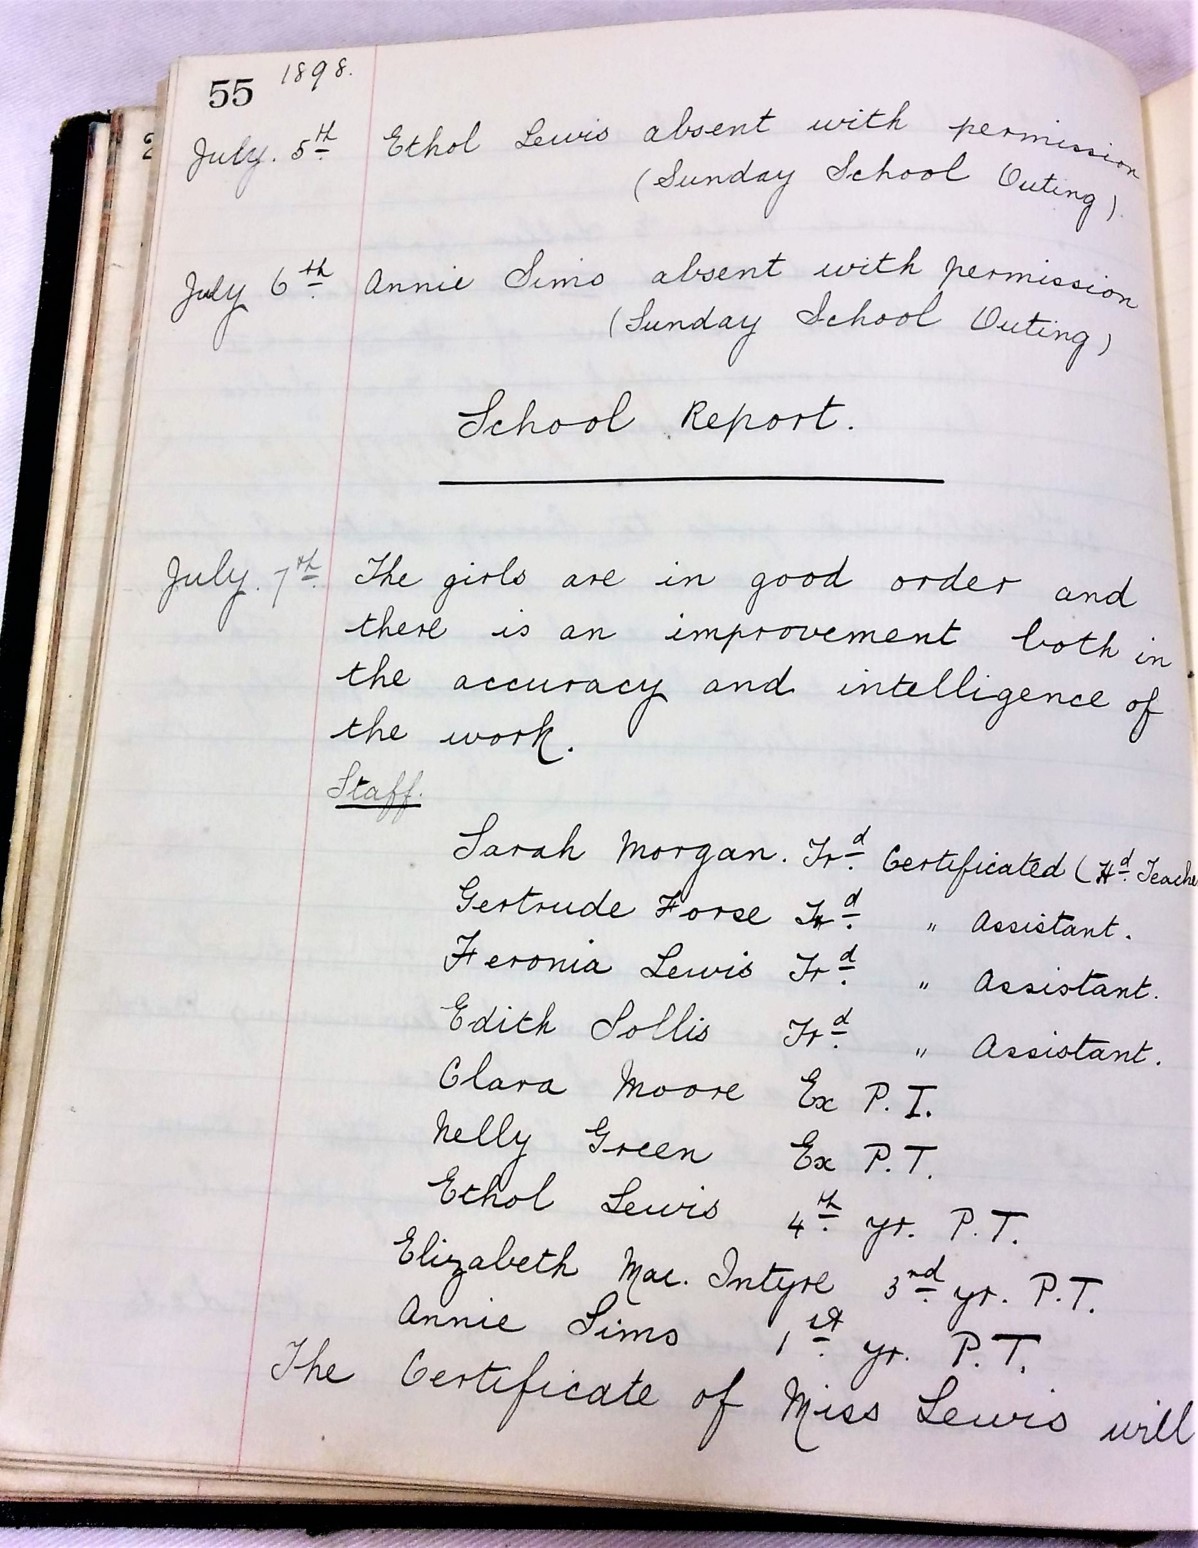 55 1898.
July. 5th Ethol Lewis absent with permission
(Sunday School Outing).
July 6th Annie Sims absent with permission
(Sunday School Outing)
School Report.
July. 7th The girls are in good order and
there is an improvement both in
the accuracy and intelligence of
the work.
Staff.
Sarah Morgan. Trd Certificated (Hd Teache
Gertrude Forse Trd " Assistant.
Feronia Lewis Trd " Assistant.
Edith Sollis Trd " Assistant.
Clara Moore Ex P.T.
Nelly Green Ex P.T.
Ethol Lewis 4th yr. P.T.
Elizabeth Mac. Intyre 3rd yr. P.T.
Annie Sims 1st yr. P.T.
The Certificate of Miss Lewis will